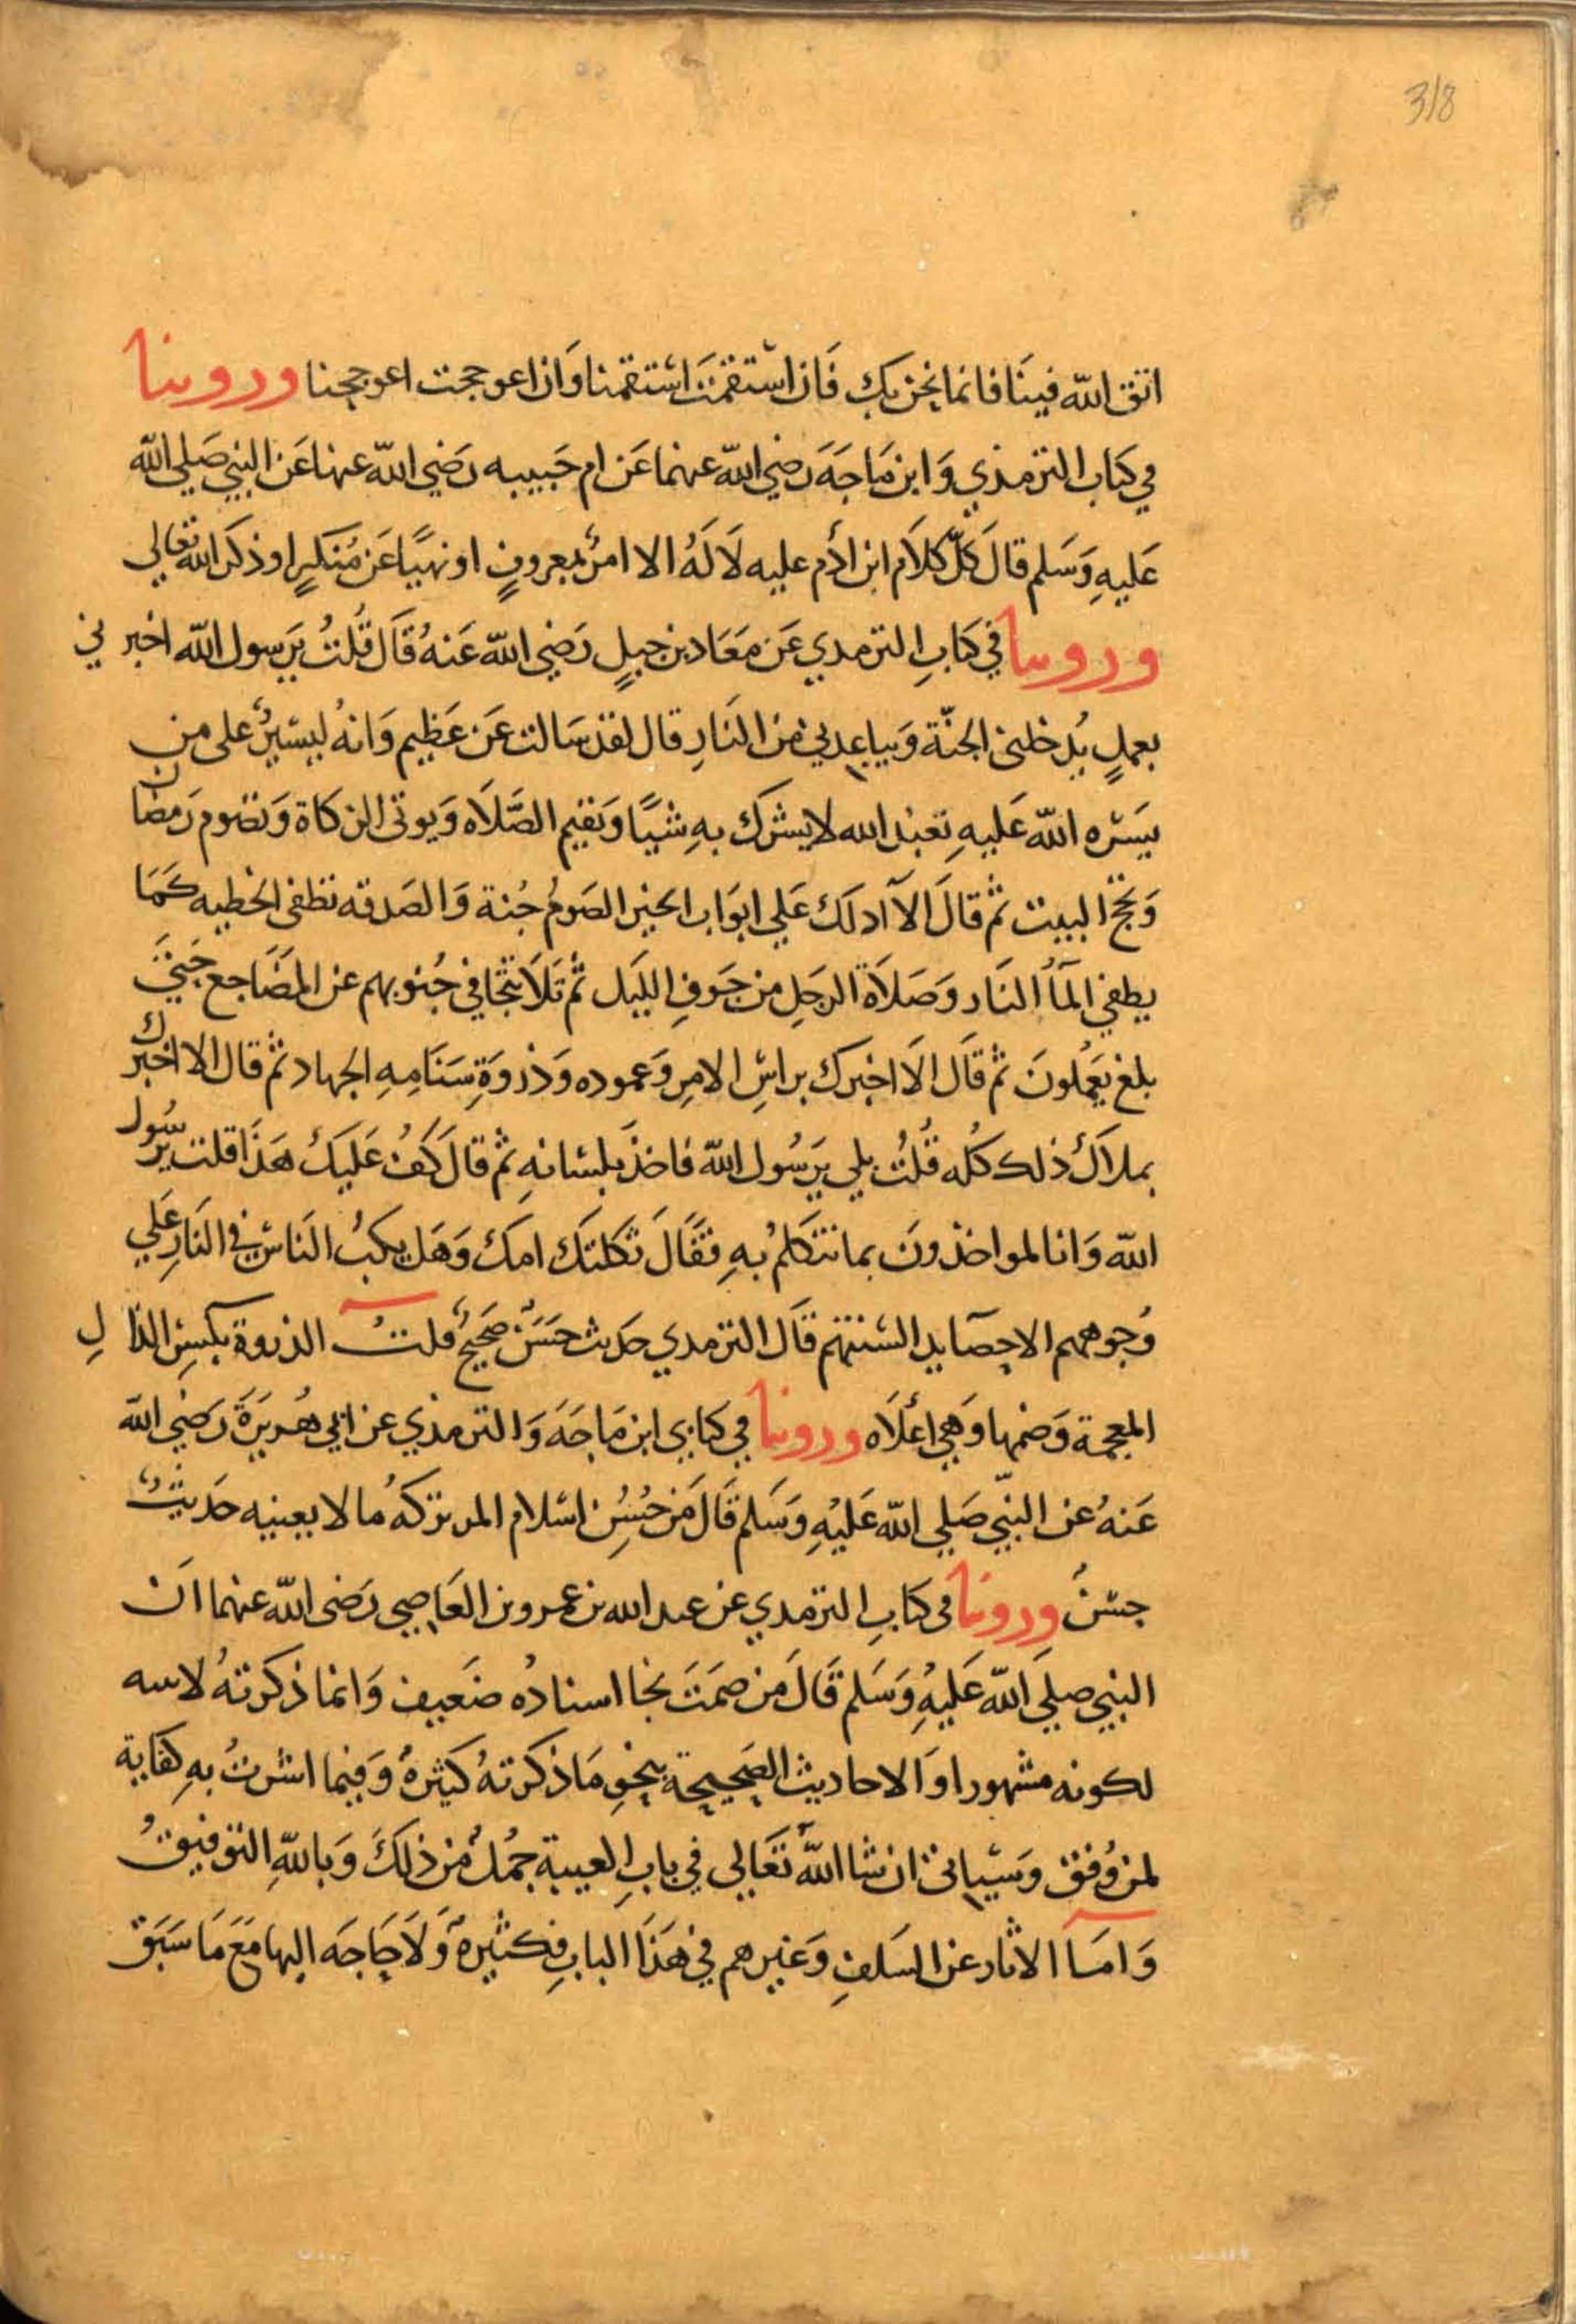 318
اتق الله فينَا فانما نحن بك فَان اسْتقمْتَ اسْتقمنا وَان اعوججت اعوججنا وروينا
في كتاب الترمذي وَابن مَاجَهَ رَضي الله عنهما عَن ام حَبيبه رَضي الله عنها عَن النبي صَلي الله
عَليهِ وَسَلم قالَ كلّ كلاَم ابن اٰدم عليه لاَ لَهُ الا امرٌ بمعروفٍ او نهيًا عَن مُنكرٍ او ذكرَ الله تعالي
وروينا في كتابِ الترمدي عَن مَعَاد بن جبلٍ رَضي الله عَنهُ قَال قُلتُ يرَسول الله اخبرني
بعملٍ يُدخلني الجنّة وَيباعدني من النَارِ قال لقد سَالت عَن عَظِيم وَانهُ ليسَيرٌ على من
يسَره الله عَليهِ تعبد الله لا يشرك بهِ شيًا وَتقيم الصَّلاَه وَيوتى الزكاة وَتصُوم رَمضان
وَتحجّ البيت ثم قالَ الآ ادلكَ عَلي ابوَاب الخير الصَومُ جُنة وَالصَدقه تطفى الخطيه كَمَا
يطفي المآءُ النَار وَصَلاَة الرجَلِ من جَوفِ الليَل ثم تَلاَ تتجَافي جُنوبهم عن المضَاجع حَتيَّ
بلغ يَعْملونَ ثم قَال الاَ اخبرك براسِ الامِر وَعموده وَذروَةِ سَنَامِهِ الجهاد ثم قال الا اخبرك
بملاَكُ ذلك كُله قُلتُ بلي يرَسُول الله فاخذَ بلسَانهِ ثم قالَ كُفُ عَليكَ هَذا قلت يرسُول
الله وَانا لمواخذونَ بما نتكَلمُ بهِ فَقَالَ ثكَلتكَ امكَ وَهَل يكبُ النَاسَ في النَارِ عَلي
وُجوههم الا حصَايد السنتهم قَال الترمدي حَديث حَسَن صَحيحٌ قلتُ الذروة بكسِر الذالِ
المعجمة وَضمها وَهي اعْلَاه وروينا في كتابي ابن مَاجَهَ وَالترمذي عن ابي هُريرَةَ رَضي الله
عَنهُ عن النبّي صَلي الله عَليْهِ وَسَلم قَالَ مَن حُسُنِ اسْلام المرء تركهُ ما لا يعينيه حَديثٌ
حسَنٌ وروينا في كتابِ الترمدي عن عبد الله بن عمرو بن العَاصِي رَضى الله عنهما اَن
النبي صلي الله عَليهِ وَسَلم قَالَ مَن صَمَتَ نجا اسنادُه ضَعيف وَانما ذكرتهُ لابينه
لكونه مشهورا وَالاحاديث الصَحيحة بنحوِ مَا ذكرتهُ كَثيرةٌ وَفيما اشرتُ بهِ كفَاية
لمن وُفق وسَيَاتى ان شا الله تعَالي في بابِ الغيبة جُملٌ من ذلكَ وَبالله التوفيقُ
وَامَّا الاثار عن السَلفِ وَغيرهم في هَذَا البابِ فكثيرةٌ وَلاَ حَاجَه اليها مَعَ مَا سَبَق